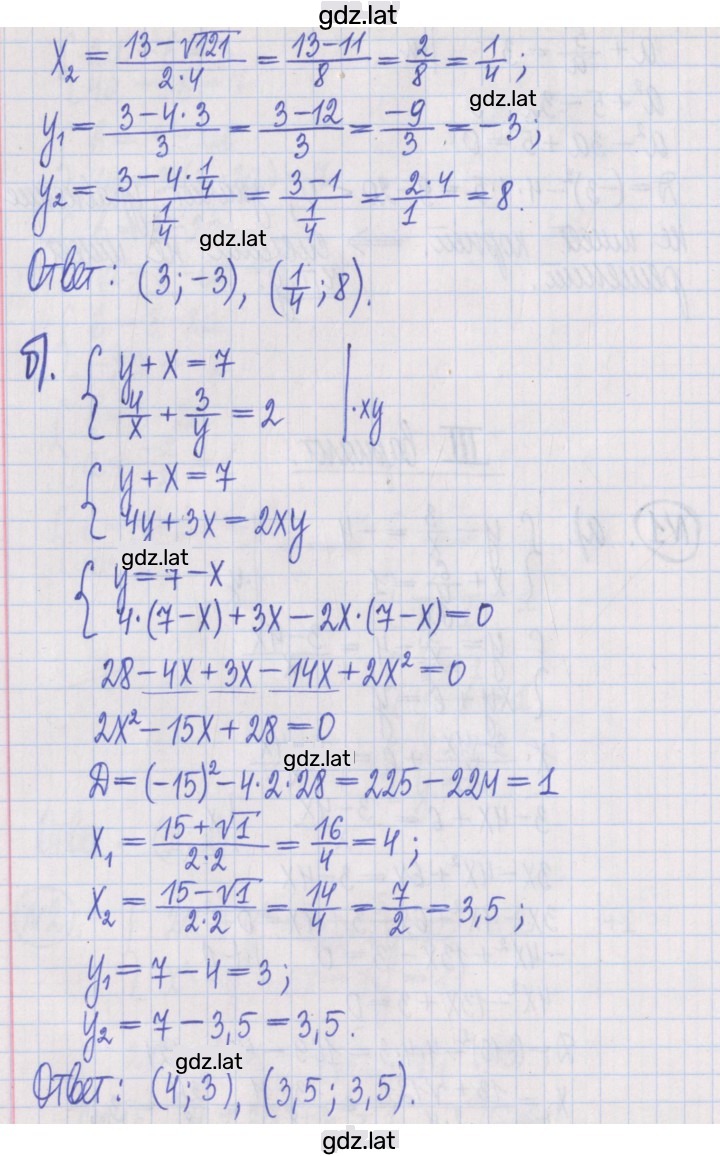 gdz.lat
x₂ = (13 − √121)/(2·4) = (13 − 11)/8 = 2/8 = 1/4;
gdz.lat
y₁ = (3 − 4·3)/3 = (3 − 12)/3 = −9/3 = −3;
y₂ = (3 − 4·1/4)/(1/4) = (3 − 1)/(1/4) = (2·4)/1 = 8.
gdz.lat
Ответ: (3; −3), (1/4; 8).
б). { y + x = 7
4/x + 3/y = 2 | ·xy
{ y + x = 7
4y + 3x = 2xy
gdz.lat
{ y = 7 − x
4·(7 − x) + 3x − 2x·(7 − x) = 0
28 − 4x + 3x − 14x + 2x² = 0
2x² − 15x + 28 = 0
gdz.lat
Д = (−15)² − 4·2·28 = 225 − 224 = 1
x₁ = (15 + √1)/(2·2) = 16/4 = 4;
x₂ = (15 − √1)/(2·2) = 14/4 = 7/2 = 3,5;
y₁ = 7 − 4 = 3;
y₂ = 7 − 3,5 = 3,5.
gdz.lat
Ответ: (4; 3), (3,5; 3,5).
gdz.lat